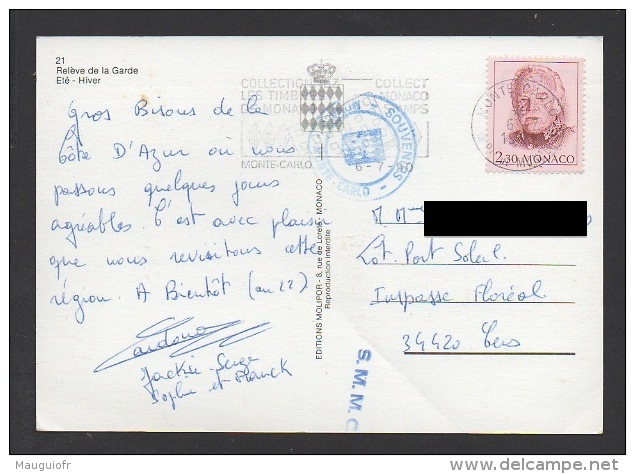 21
Relève de la Garde
Eté - Hiver
COLLECTIONNEZ COLLECT
LES TIMBRES MONACO
DE MONACO STAMPS
MONTE-CARLO 6-7-90
SOUVENIRS
MONTE-CARLO
2,30 MONACO
Gros Bisous de la
Côte D'Azur où nous
passons quelques jours
agréables. C'est avec plaisir
que nous revisitons cette
région. A Bientôt (au 22)
Jackie - Serge
Sophie et Franck
EDITIONS MOLIPOR - 8, rue de Lorete - MONACO
Reproduction interdite
M Mme
Lot. Port Soleil
Impasse Floréal
34420 Cers
S.M.M.C
Mauguiofr
delcampe.net